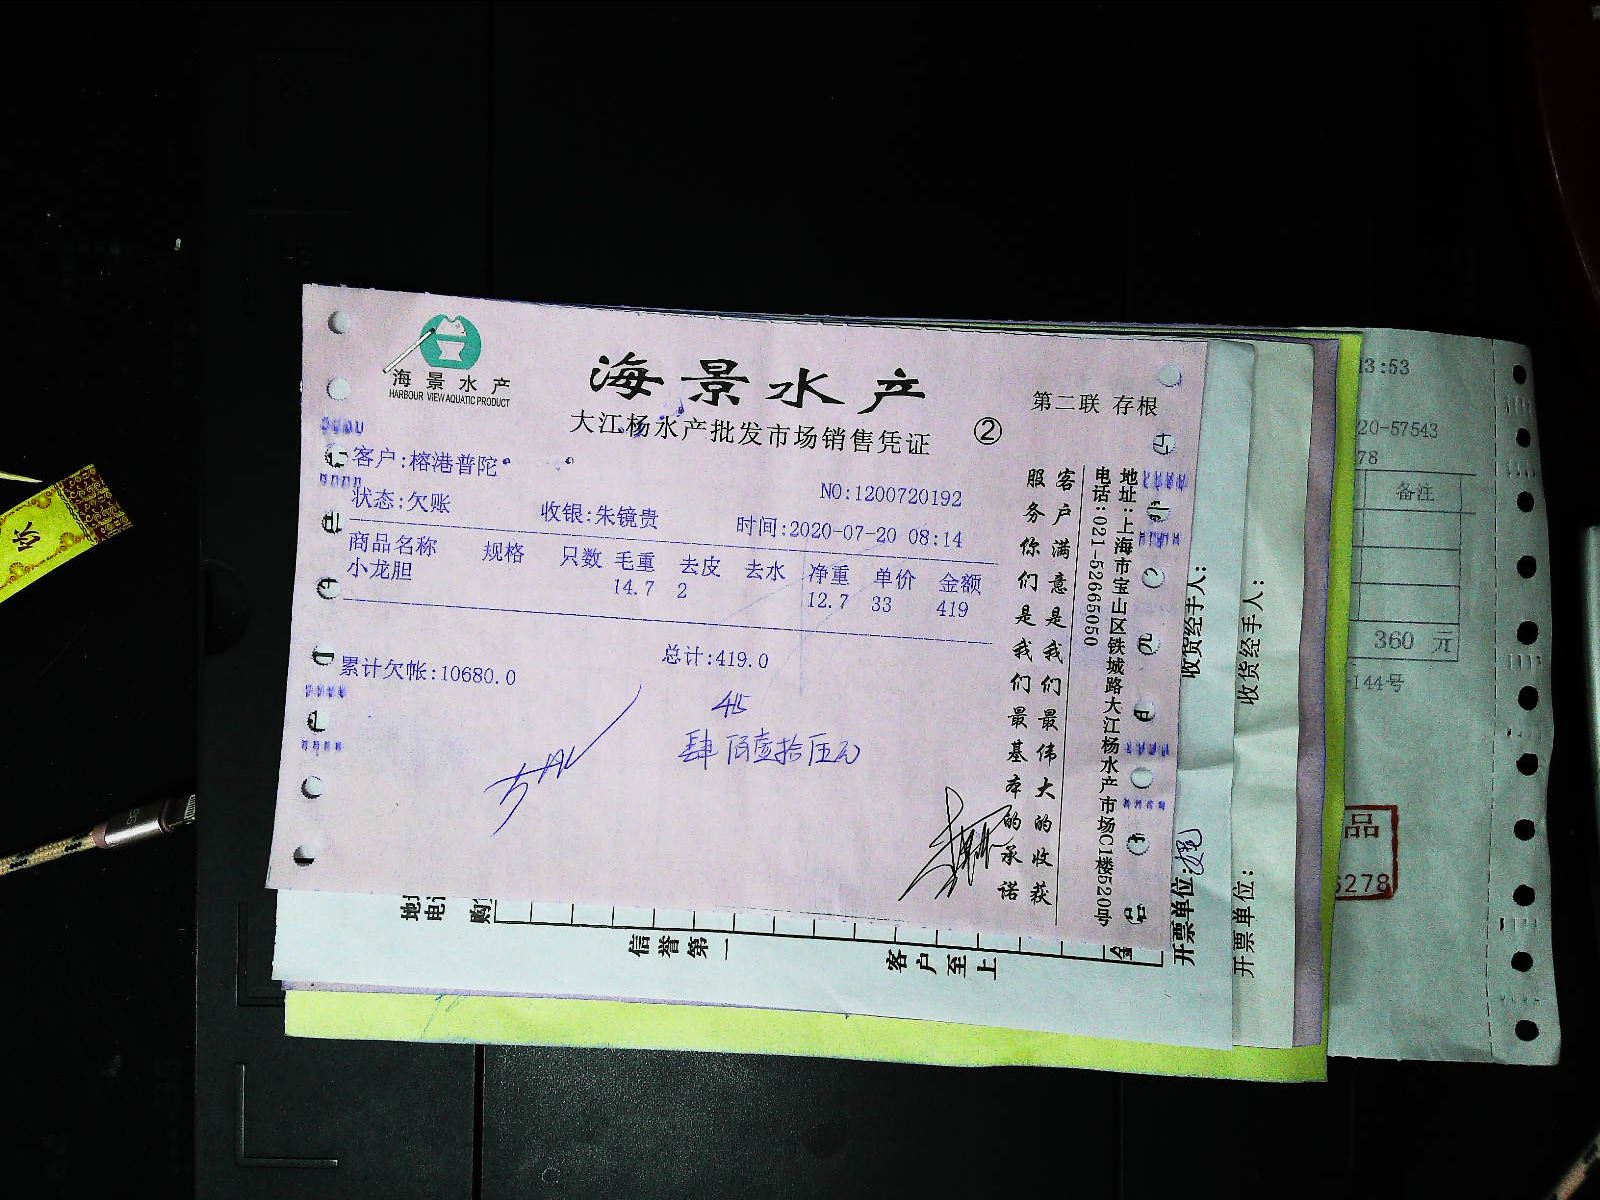 海景水产
HARBOUR VIEW AQUATIC PRODUCT
海景水产
大江杨水产批发市场销售凭证
②
第二联 存根
客户:榕港普陀
NO:1200720192
状态:欠账 收银:朱镜贵 时间:2020-07-20 08:14
商品名称 规格 只数 毛重 去皮 去水 净重 单价 金额
小龙胆 14.7 2 12.7 33 419
累计欠帐:10680.0 总计:419.0
415
肆佰壹拾伍元
客户满意是我们最伟大的收获
服务你们是我们最基本的承诺
地址:上海市宝山区铁城路大江杨水产市场C1楼520号
电话:021-52665050
收货经手人:
开票单位:
收货经手人:
开票单位:
购
信誉第一
客户至上
金
13:53
20-57543
78
备注
360 元
144号
品
6278